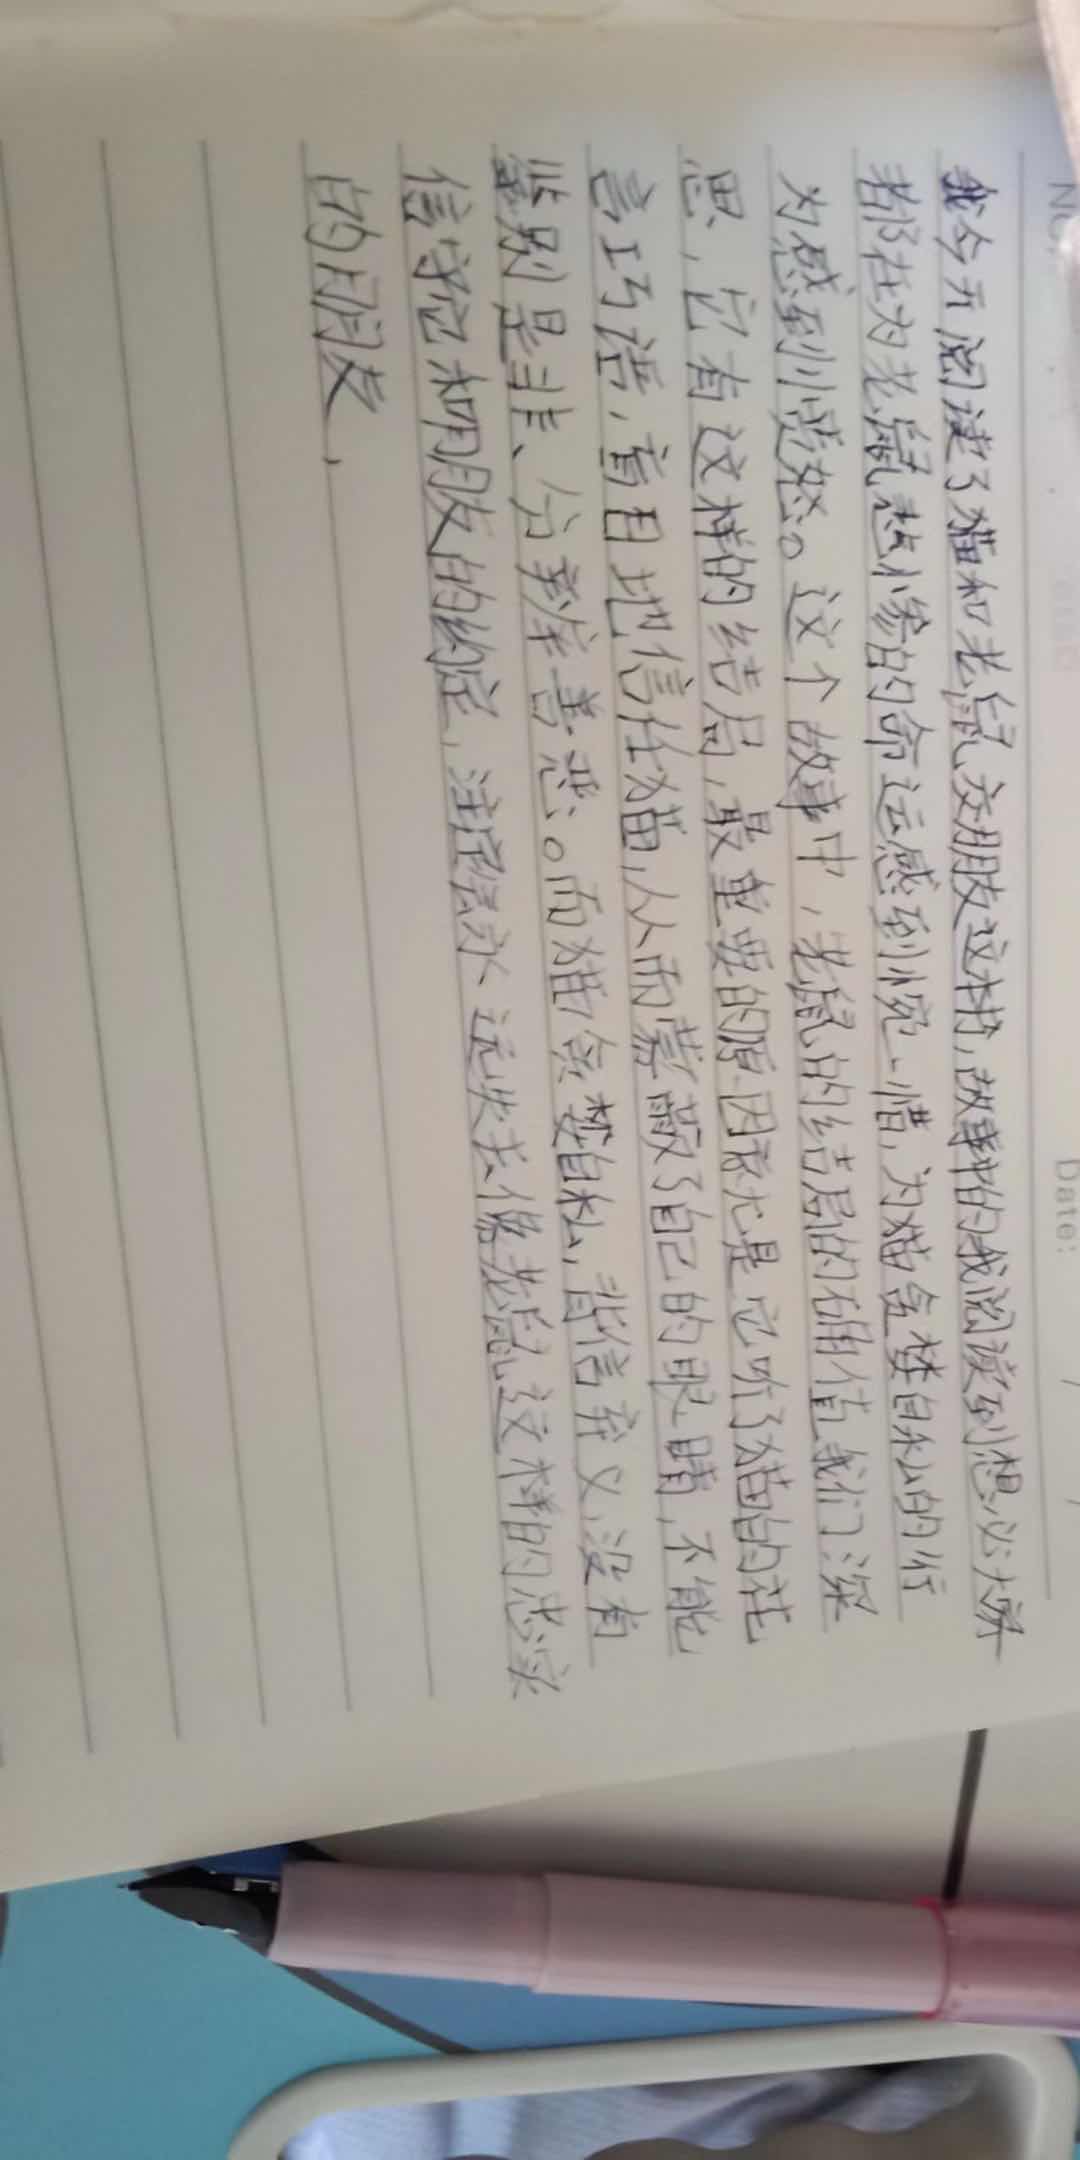 No.
Date:
我今天阅读了猫和老鼠交朋友这本书,故事中的我阅读到想必大家
都在为老鼠悲惨的命运感到惋惜,为猫贪婪自私的行
为感到愤怒。这个故事中,老鼠的结局的确值我们深
思,它有这样的结局,最重要的原因就是它听了猫的花
言巧语,盲目地信任猫,从而蒙蔽了自己的眼睛,不能
鉴别是非、分辨善恶。而猫贪婪自私,背信弃义,没有
信守它和朋友的约定,注定永远失去像老鼠这样的忠实
的朋友,